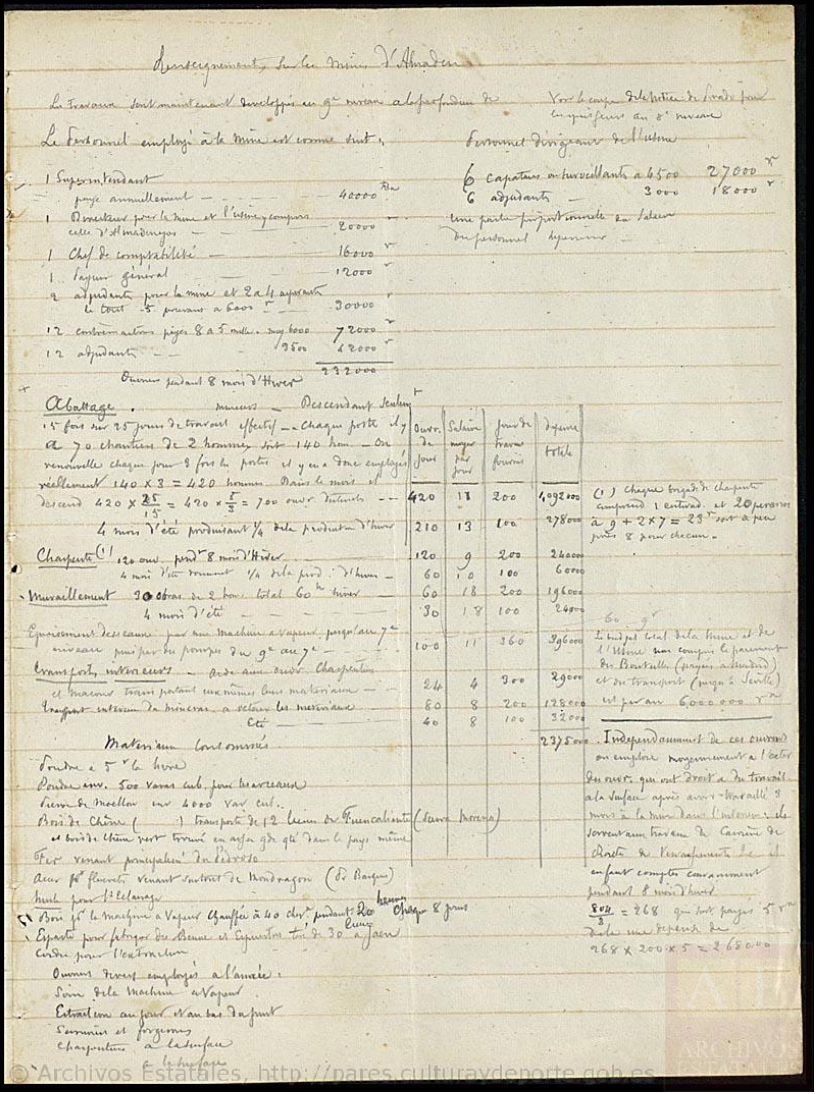 Renseignements sur les mines d'Almaden
Les travaux sont maintenant developpés au 9e niveau a la profondeur de
Voir la coupe de la notice de Prado pour
au 8e niveau
Le Personnel employé à la mine est comme suit.
Personnel dirigeant de l'usine
1 Superintendant
paye annuellement - - - 40000
6 capataces ou surveillants a 4500 27000 r
6 adjudants - 3000 18000 r
1 Directeur pour la mine et l'usine y compris
celle d'Almadenejos - - - 20000
une partie proportionnelle du Salaire
du personnel superieur -
1 Chef de comptabilité - - - 16000 r
1 Payeur général - - - 12000 r
2 adjudants pour la mine et 2 a 4 aspirants
le tout 5 a 6000 r - 30000 r
12 contremaitres payés 8 a 5 mille. moy 6000 72000 r
12 adjudants - - 3500 42000 r
232000
Ouvriers pendant 8 mois d'Hiver
Abattage. mineurs - Descendant seulemt
15 fois sur 25 jours de travail effectif - Chaque poste il y
a 70 chantiers de 2 hommes soit 140 hom. - On
renouvelle chaque jour 3 fois les postes et y en a donc employés
réellement 140 x 3 = 420 hommes. Dans le mois il
descend 420 x 25/15 = 420 x 5/3 = 700 ouvr - -
Ouvr. de jour | Salaire moyen par jour | jour de travail fournis | depense totale
420 18 200 1,092000
4 mois d'été produisant 1/4 de la production d'hiver
210 13 100 278000
(1) Chaque brigade de charpente
comprend 1 et 20
à 9 + 2 x 7 = 23 r soit a peu
près 8 pour chacun.
Charpente (1) 120 ouv. pendt 8 mois d'Hiver 120 9 200 24000
4 mois d'été donnant 1/4 de la prod. d'hiver - 60 10 100 6000
Muraillement 30 obras de 2 hom. total 60 hm hiver - 60 18 200 196000
4 mois d'été - - - 30 18 100 24000
Epuisement des eaux par une machine a vapeur jusqu'au 7e
niveau puis par des pompes du 9e au 7e - - - 100 11 360 396000
Transports interieurs - aide aux ouvr Charpentiers
et macons transportant eux mêmes leurs materiaux - - 24 4 300 29000
Transport interieur du minerai, a la les materiaux - - 80 8 200 128000
Eté - 40 8 100 32000
2375000
Le budget total de la Mine et de
l'Usine non compris le paiement
des Bouteilles (payées a Madrid)
et du transport (jusqu'a Seville)
est par an 6000000 r
Materiaux consommés
Poudre a 5 r la livre
Poudre env. 500 varas cub. pour
Pierre de Moellon env 4000 var cub.
Bois de Chêne ( ) transporté de 12 lieues de Fuencaliente (Sierra Morena)
et bois de chêne vert trouvé en assez gde qté dans le pays même
Fer venant principalemt du Pedroso
Acier pr fleurets venant surtout de Mondragon (Pr Basques)
Huile pour l'Eclairage
Bois pr la machine a Vapeur chauffée à 40 chev. pendant 20 heures chaque 8 jours
Esparto pour fabriquer des Bennes et Espuertas tiré de 30 lieues a Jaen
Cordes pour l'extraction
Ouvriers divers employés a l'année:
Soin de la machine a Vapeur.
Extraction au jour et au bas du puits
Serruriers et forgerons
Charpentiers a la surface
a la surface
Independamment de ces ouvriers
on emploie moyennement a l'exter
des ouvr. qui ont droit a du travail
a la surface après avoir travaillé 3
mois a la mine dans l'interieur: ils
servent aux travaux de Carrière de
de Terrassements
enfant comptes couramment
pendant 8 mois d'hiver
804/3 = 268 qui sont payés 5 r
De la une depense de
268 x 200 x 5 = 268000
© Archivos Estatales, http://pares.culturaydeporte.gob.es
ARCHIVOS
ESTATALES